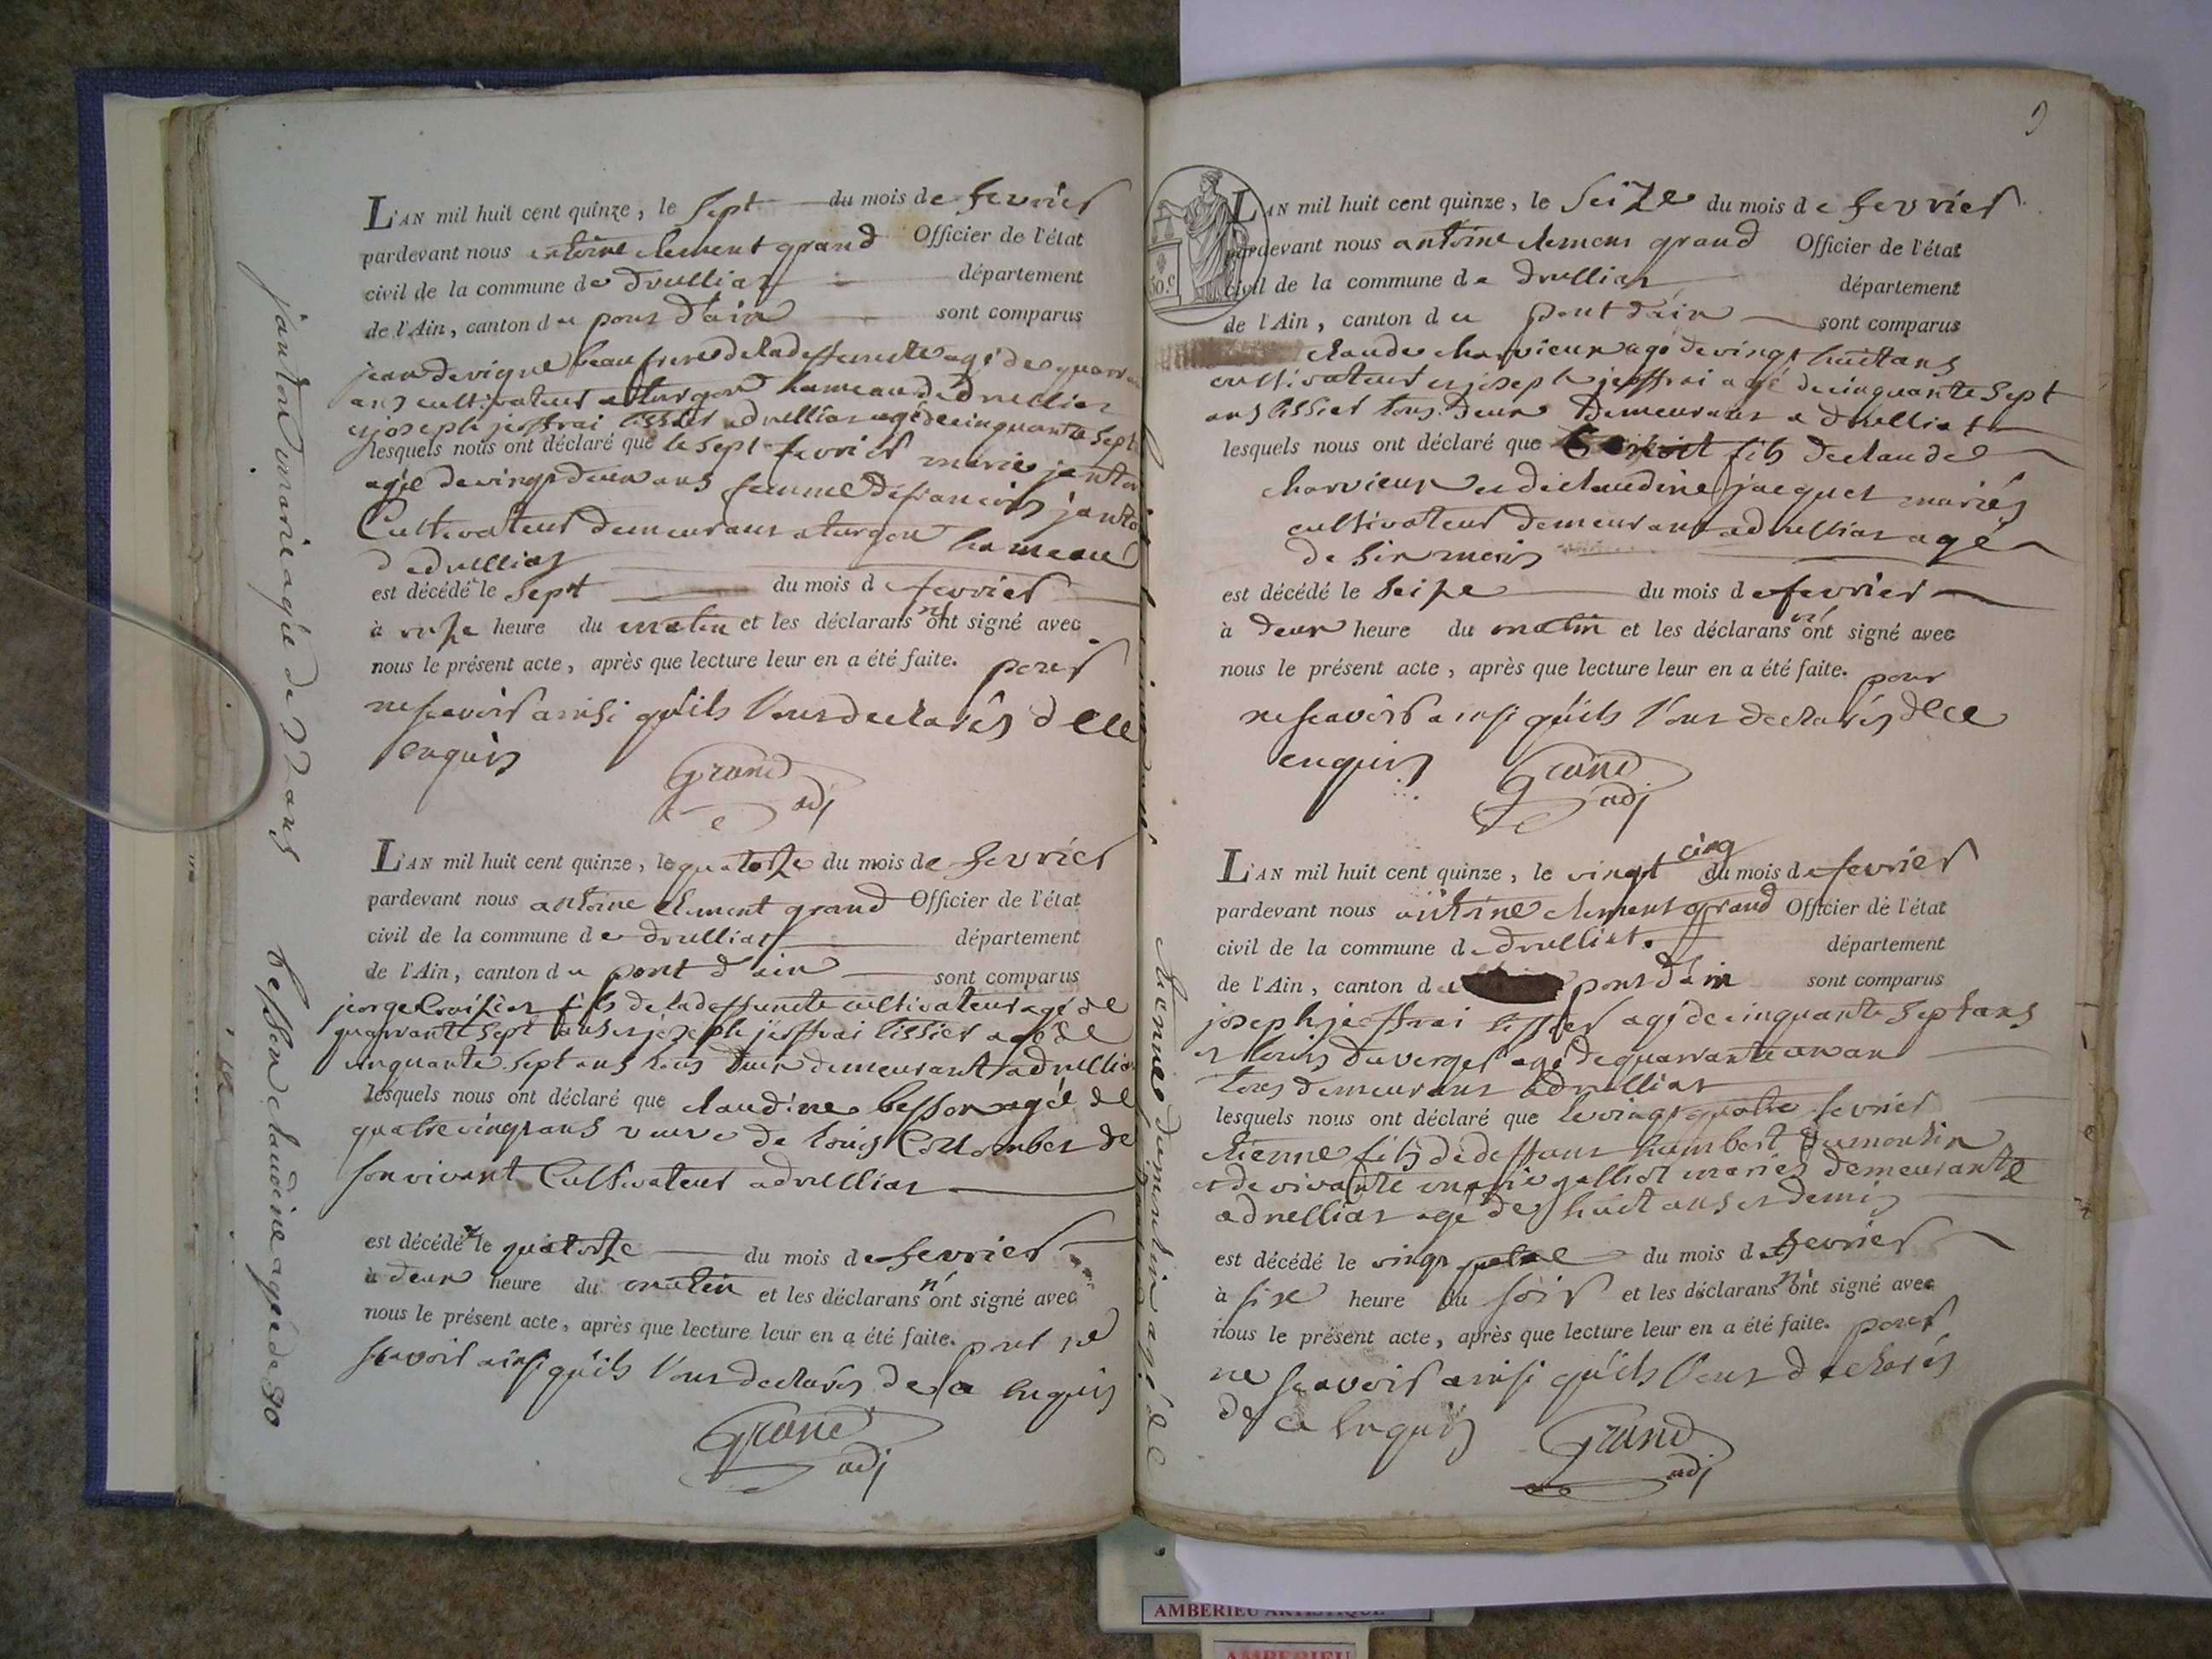 janton marie agée de 22 ans
besson claudine agée de 80
L'AN mil huit cent quinze, le sept du mois de fevrier
pardevant nous antoine clement grand Officier de l'état
civil de la commune de druillat département
de l'Ain, canton du pont d'ain sont comparus
jean devigne beau frere de la deffuncte agé de quarante
ans cultivateur a turgon hameau de druillat
et joseph jeoffrai tissier a druillat agé de cinquante sept
lesquels nous ont déclaré que le sept fevrier marie janton
agée de vingt deux ans femme de francois janton
Cultivateur demeurant a turgon hameau
de druillat
est décédé le sept du mois de fevrier
à onze heure du matin et les déclarans n'ont signé avec
nous le présent acte, après que lecture leur en a été faite. pour
ne scavoir ainsi qu'ils l'ont declarés de ce
enquis
Grand
adj
L'AN mil huit cent quinze, le quatorze du mois de fevrier
pardevant nous antoine clement grand Officier de l'état
civil de la commune de druillat département
de l'Ain, canton du pont d'ain sont comparus
jeorge fils de la deffuncte cultivateur agé de
quarrante sept ans et joseph jeoffrai tissier agé de
cinquante sept ans tous deux demeurant a druillat
lesquels nous ont déclaré que claudine besson agée de
quatre vingt ans veuve de louis de
son vivant Cultivateur a druillat
est décédée le quatorze du mois de fevrier
à deux heure du matin et les déclarans n'ont signé avec
nous le présent acte, après que lecture leur en a été faite. pour ne
scavoir ainsi qu'ils l'ont declarés de ce enquis
Grand
adj
etienne dumoulin agé de
9
50.c
L'AN mil huit cent quinze, le seize du mois de fevrier
pardevant nous antoine clement grand Officier de l'état
civil de la commune de druillat département
de l'Ain, canton du pont d'ain sont comparus
claude charvieux agé de vingt huit ans
cultivateur et joseph jeoffrai agé de cinquante sept
ans tissier tous deux demeurant a druillat
lesquels nous ont déclaré que fils de claude
charvieux et de claudine jacquet mariés
cultivateur demeurant a druillat agé
de six mois
est décédé le seize du mois de fevrier
à deux heure du matin et les déclarans n'ont signé avec
nous le présent acte, après que lecture leur en a été faite. pour
ne scavoir ainsi qu'ils l'ont declarés de ce
enquis
Grand
adj
L'AN mil huit cent quinze, le vingt cinq du mois de fevrier
pardevant nous antoine clement grand Officier de l'état
civil de la commune de druillat. département
de l'Ain, canton de pont d'ain sont comparus
joseph jeoffrai tissier agé de cinquante sept ans
et louis duverger agé de quarrante un an
tous demeurant a druillat
lesquels nous ont déclaré que le vingt quatre fevrier
etienne fils de deffunt humbert dumoulin
et de vivante marie galliot mariés demeurante
a druillat agé de huit ans et demi
est décédé le vingt quatre du mois de fevrier
à six heure du soir et les déclarans n'ont signé avec
nous le présent acte, après que lecture leur en a été faite. pour
ne scavoir ainsi qu'ils l'ont declarés
de ce enquis
Grand
adj
AMBERIEU ARTISTIQUE
AMBERIEU